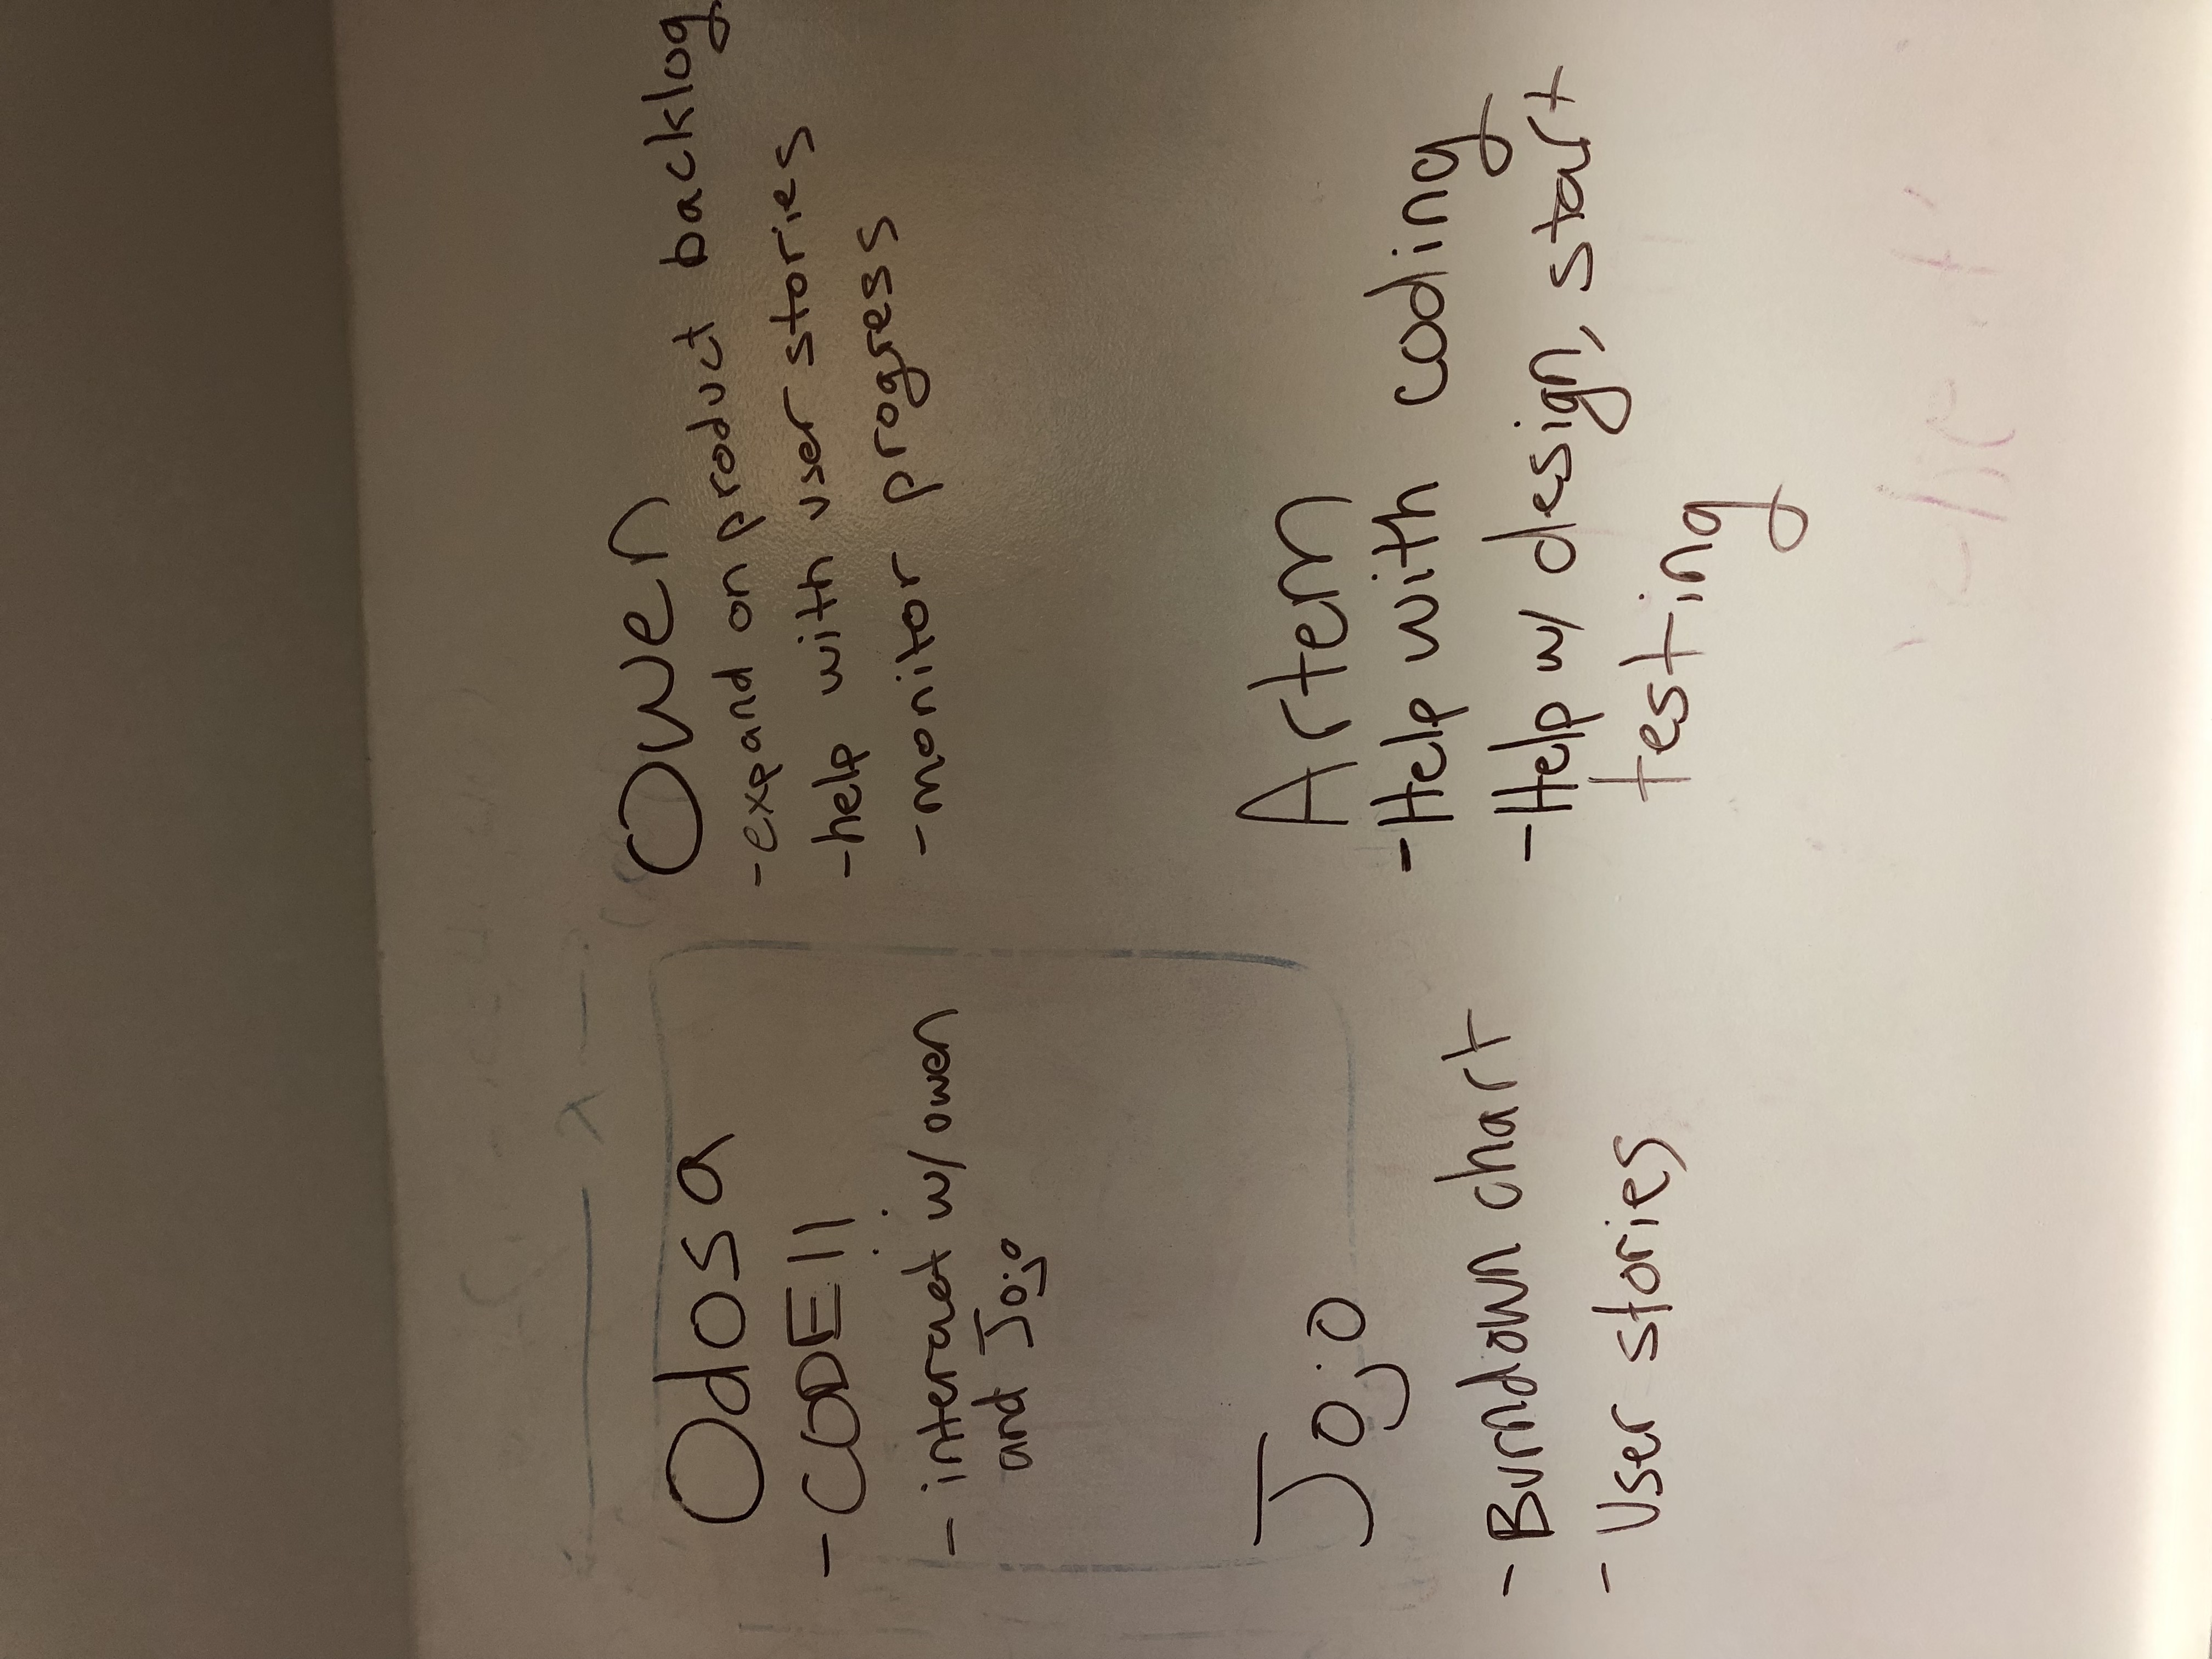 Odosa
- CODE!!
- interact w/ owen
and Jojo
Owen
-expand on product backlog
-help with user stories
-monitor progress
Jojo
- Burndown chart
- User stories
Artem
-Help with coding
-Help w/ design, start
testing